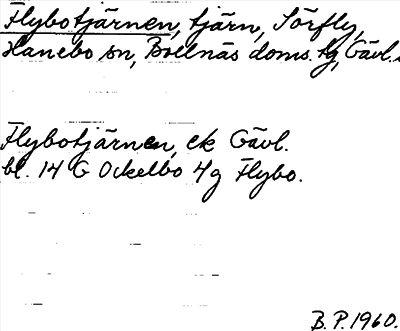 Flybotjärnen, tjärn, Sörfly,
Hanebo sn, Bollnäs doms. tg, Gävl.
Flybotjärnen, ek Gävl.
bl. 14 G Ockelbo 4g Flybo.
B.P. 1960.